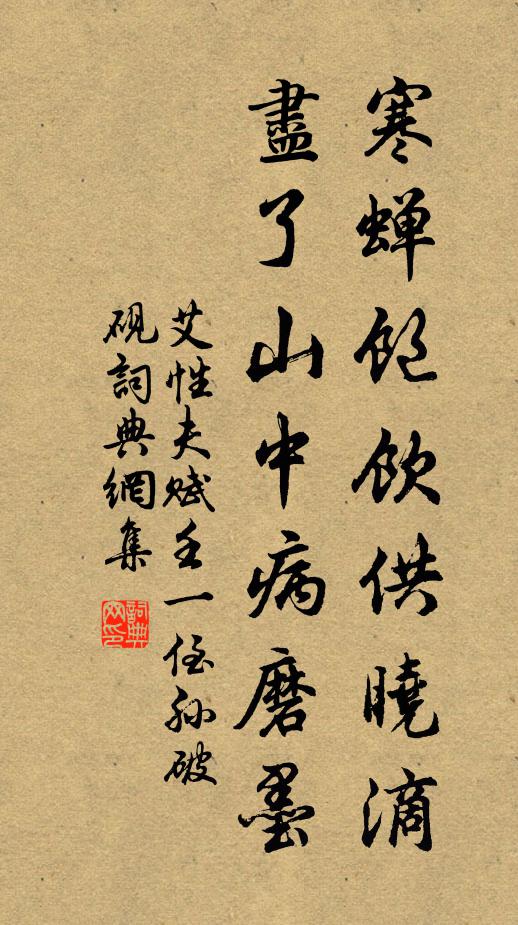 寒蝉飽飲供曉滴
盡了山中病磨墨
艾性夫賦壬一侄孙破
硯詞典網集
詞典网印